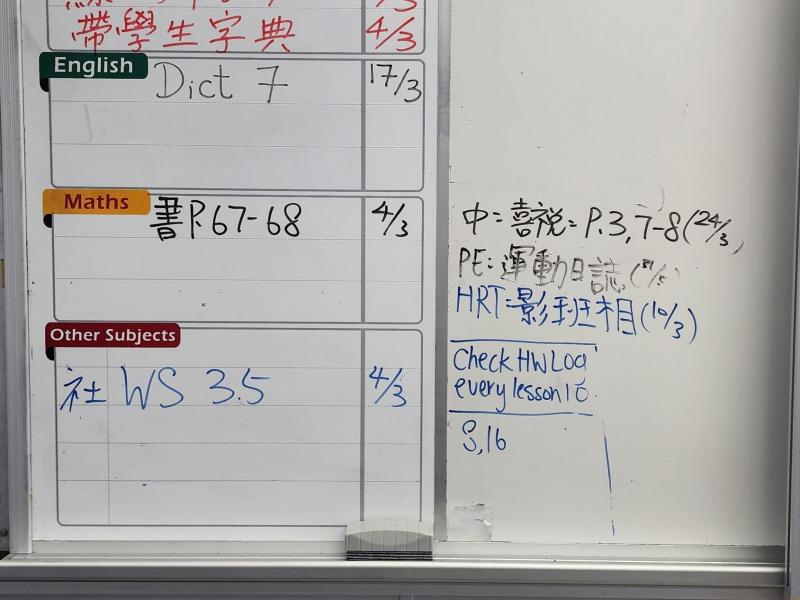 帶學生字典 4/3
English
Dict 7 17/3
Maths
書P.67-68 4/3
Other Subjects
社 WS 3.5 4/3
中=喜說=P.3,7-8(24/3)
PE:運動日誌
HRT=影班相(10/3)
Check HW Log
every lesson
8,16